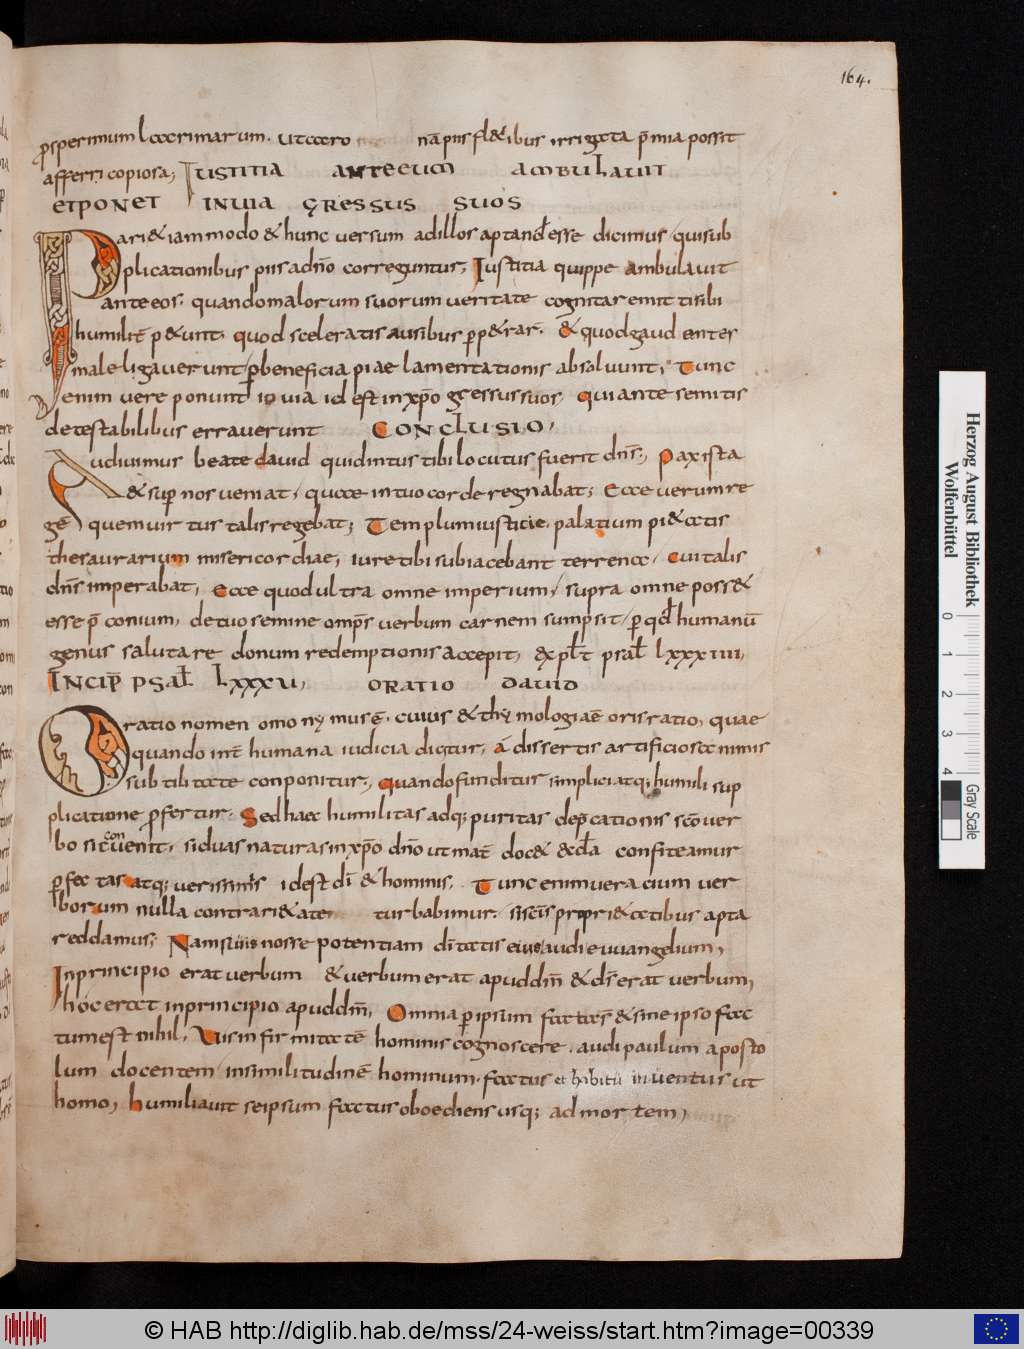 164.
p̱sperimum lacrimarum. ut caro nā piis fl&ibus irrigata p̄mia possit
afferri copiosa; IUSTITIA ANTE EUM AMBULAUIT
ET PONET IN UIA GRESSUS SUOS
Pari & iam modo & hunc uersum ad illos aptand̄ esse dicimus qui sub
plicationibus piis ad dn̄o correguntur; Iustitia quippe ambulauit
ante eos. quando malorum suorum ueritate cogitare mittisibi
humilit̄ p&unt. quod sceleratis ausibus ꝑp&rar̄. & quod gaudenter
male ligauerunt ꝑ beneficia piae lamentationis absoluunt; Tunc
enim uere ponunt in uia id est in xp̄o gressus suos. qui ante semitis
detestabilibus errauerunt CONCLUSIO;
Audiuimus beate dauid quid intus tibi locutus fuerit dn̄s; Pax ista
& sup̄ nos ueniat, quae in tuo corde regnabat; Ecce uerum re
gē quem uirtus talis regebat; Templum iusticie. palatium pi&atis
thesaurarium misericordiae, iure tibi subiacebant terrena, cui talis
dn̄s imperabat; Ecce quod ultra omne imperium, supra omne poss&
esse p̄conium, de tuo semine omp̄s uerbum carnem sumpsit, ꝑ qđ humanū
genus salutare donum redemptionis accepit, expłt psał LXXXIIII,
INCIP̄ PSAŁ LXXXU, ORATIO DAUID
Oratio nomen omonymus ē. cuius & thymologia ē oris ratio, quae
quando int̄ humana iudicia dicitur, a dissertis artificiosa nimis
subtilitate conponitur; Quando funditur simpliciatq; humili sup
plicatione ꝓfertur. Sed haec humilitas adq; puritas dep̄cationis sc̄o uer
bo sic conuenit, si duas naturas in xp̄o dn̄o ut mat̄ doc& eccła confiteamur
ꝑfectas atq; uerissimis id est dī & hominis; Tunc enim ueracium uer
borum nulla contrari&ate turbabimur. si sc̄is propri&atibus apta
reddamus; Nam si uis nosse potentiam dīt&atis eius audi euuangelium,
In principio erat uerbum & uerbum erat apud dm̄ & ds̄ erat uerbum,
hoc erat in principio apud dm̄, Omnia ꝑ ipsum facta s̄ & sine ipso fac
tum est nihil, Uis infirmitatē hominis cognoscere. audi paulum aposto
lum docentem, in similitudinē hominum. factus et habitu inuentus ut
homo, humiliauit seipsum factus oboediens usq; ad mortem,
Herzog August Bibliothek
Wolfenbüttel
0 1 2 3 4
Gray Scale
© HAB http://diglib.hab.de/mss/24-weiss/start.htm?image=00339